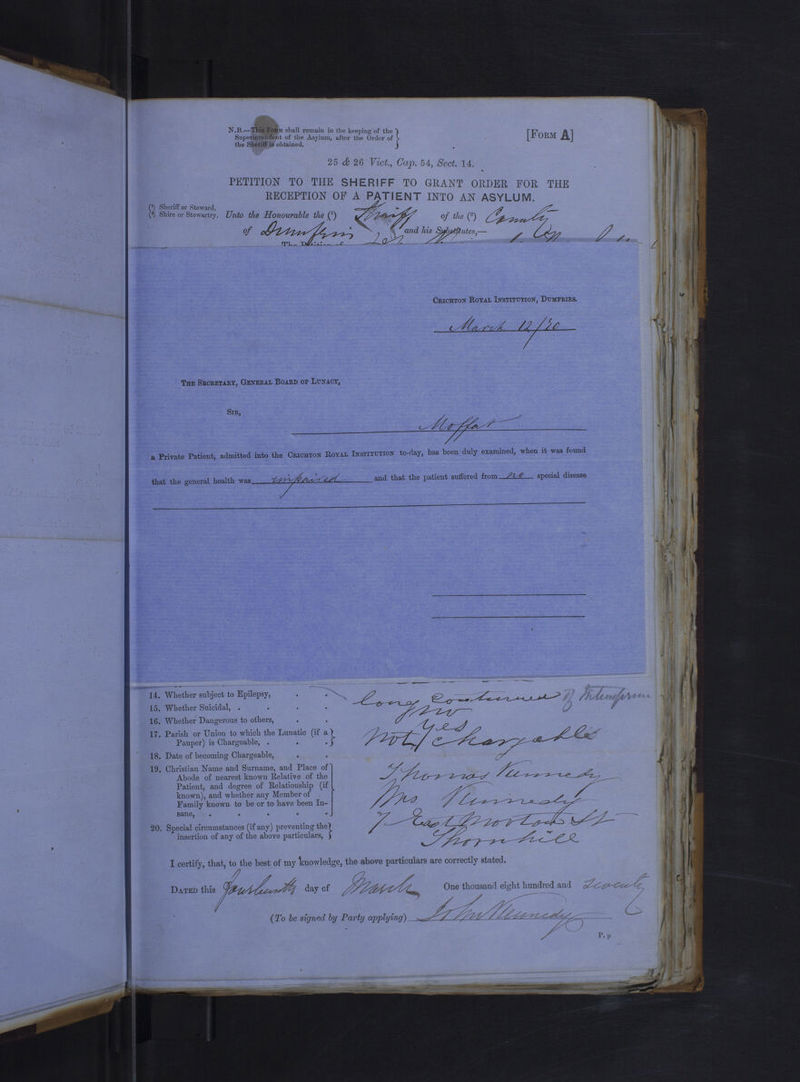 N.B.—This Form shall remain in the keeping of the
Superintendent of the Asylum, after the Order of
the Sheriff is obtained.
[FORM A]
25 & 26 Vict., Cap. 54, Sect. 14.
PETITION TO THE SHERIFF TO GRANT ORDER FOR THE
RECEPTION OF A PATIENT INTO AN ASYLUM.
(¹) Sheriff or Steward,
(²) Shire or Stewartry.
Unto the Honourable the (¹) Sheriff of the (²) County
of Dumfries and his Substitutes,—
CRICHTON ROYAL INSTITUTION, DUMFRIES.
March 12/70
THE SECRETARY, GENERAL BOARD OF LUNACY,
SIR,
Moffat
a Private Patient, admitted into the CRICHTON ROYAL INSTITUTION to-day, has been duly examined, when it was found
that the general health was impaired and that the patient suffered from no special disease
14. Whether subject to Epilepsy,
long continued
15. Whether Suicidal,
no
16. Whether Dangerous to others,
yes
17. Parish or Union to which the Lunatic (if a
Pauper) is Chargeable,
not chargeable
18. Date of becoming Chargeable,
19. Christian Name and Surname, and Place of
Abode of nearest known Relative of the
Patient, and degree of Relationship (if
known), and whether any Member of
Family known to be or to have been In-
sane,
Thomas Kennedy
Mrs Kennedy
7 East Morton St
Thornhill
20. Special circumstances (if any) preventing the
insertion of any of the above particulars,
I certify, that, to the best of my knowledge, the above particulars are correctly stated.
DATED this fourteenth day of March One thousand eight hundred and seventy
(To be signed by Party applying) John Kennedy